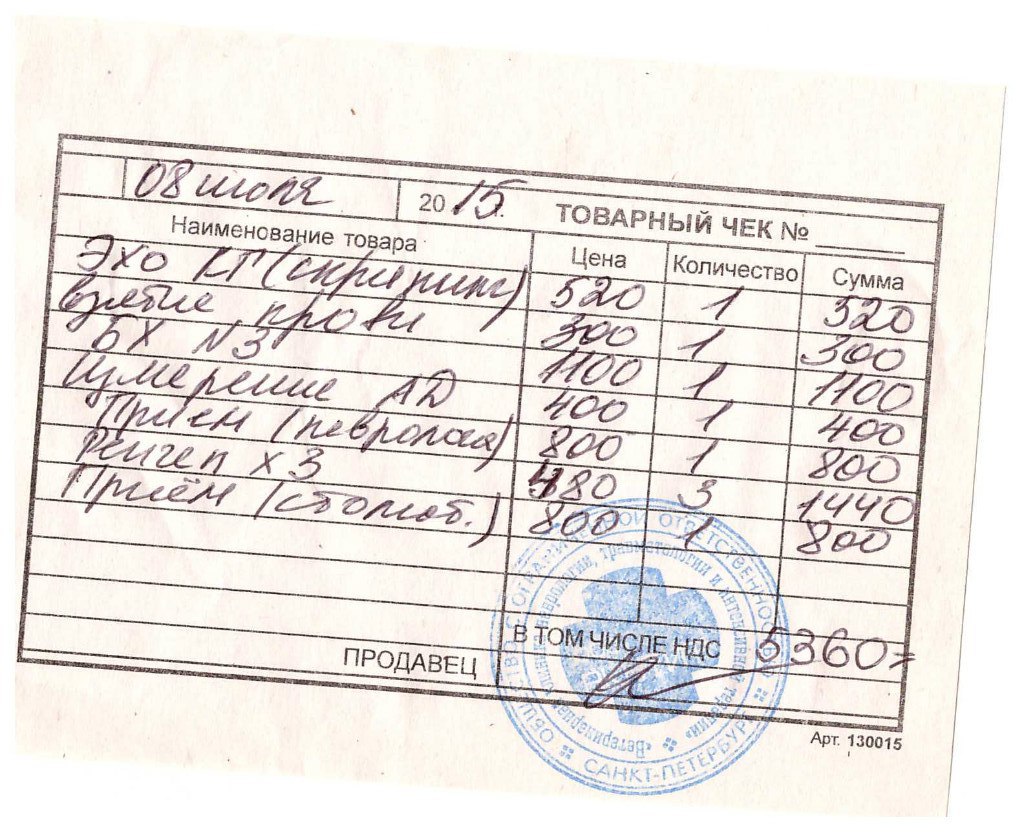 08 июля 2015. ТОВАРНЫЙ ЧЕК №
Наименование товара Цена Количество Сумма
Эхо КГ (скрининг) 520 1 520
взятие крови 300 1 300
БХ N3 1100 1 1100
Измерение АД 400 1 400
Приём (невролога) 800 1 800
Ренген х 3 480 3 1440
Приём (стомат.) 800 1 800
В ТОМ ЧИСЛЕ НДС 5360=
ПРОДАВЕЦ
ОБЩЕСТВО С ОГРАНИЧЕННОЙ ОТВЕТСТВЕННОСТЬЮ
САНКТ-ПЕТЕРБУРГ
«Ветеринарная клиника неврологии, травматологии и интенсивной терапии»
Арт. 130015